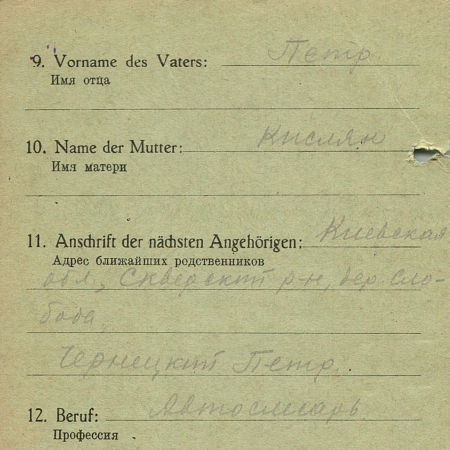 9. Vorname des Vaters: Петр
Имя отца
10. Name der Mutter: Кислян
Имя матери
11. Anschrift der nächsten Angehörigen: Киевская
Адрес ближайших родственников
обл, Скверский р-н, дер. Сло-
бода,
Чернецкий Петр.
12. Beruf: Автослесарь
Профессия